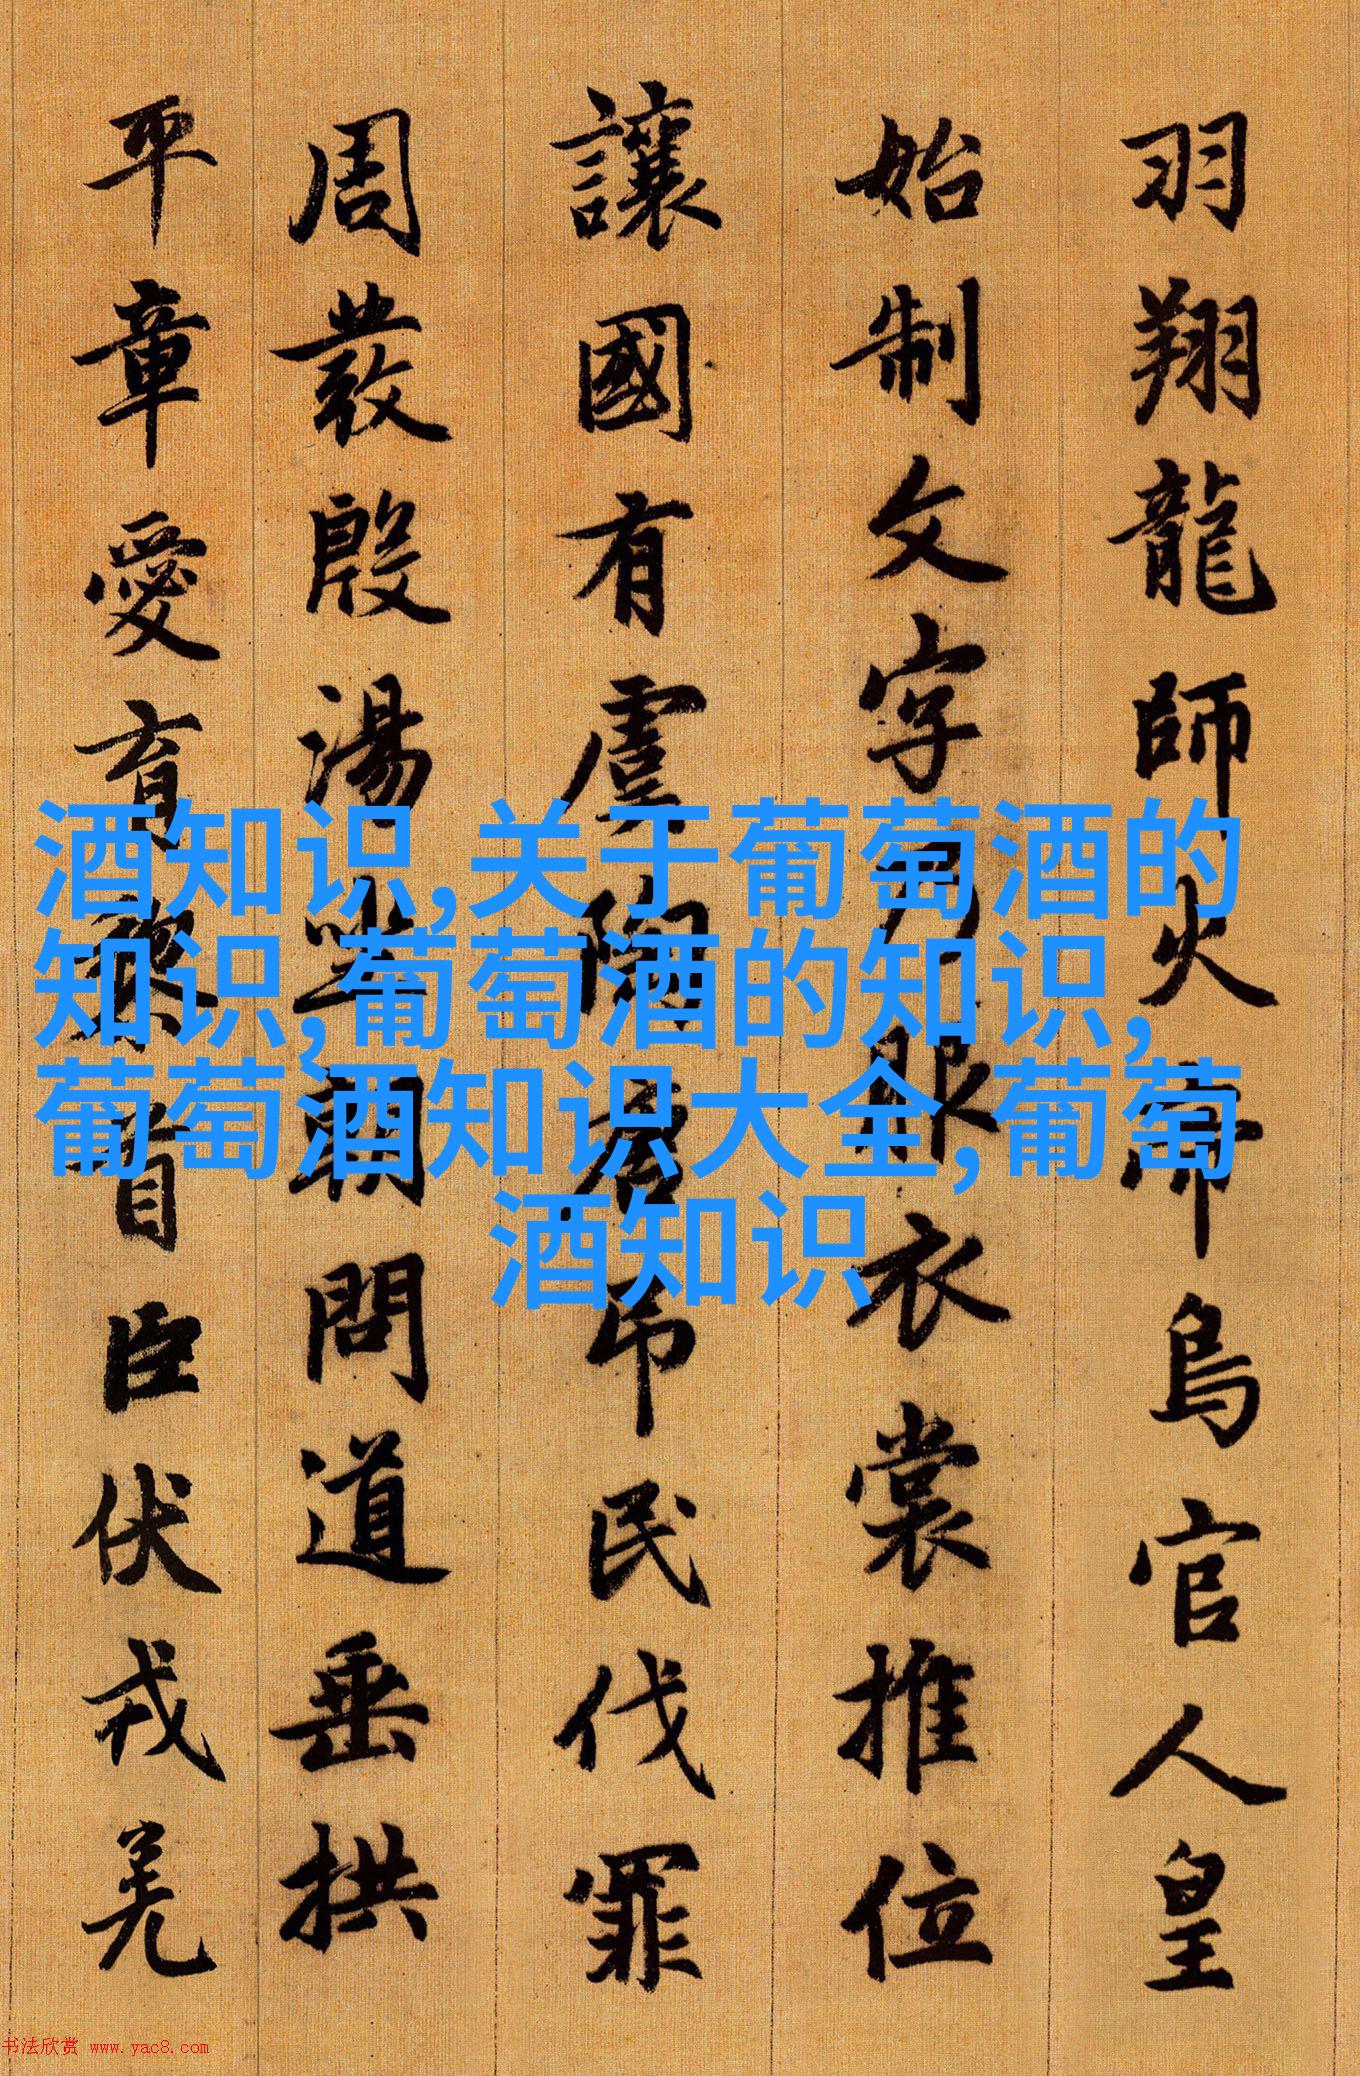 羽翔龍師火帝鳥官人皇
始制文字乃服衣裳推位
讓國有虞陶唐吊民伐罪
周發殷湯坐朝問道垂拱
平章愛育黎首臣伏戎羌
酒知识,关于葡萄酒的
知识,葡萄酒的知识,
葡萄酒知识大全,葡萄
酒知识
书法欣赏 www.yac8.com